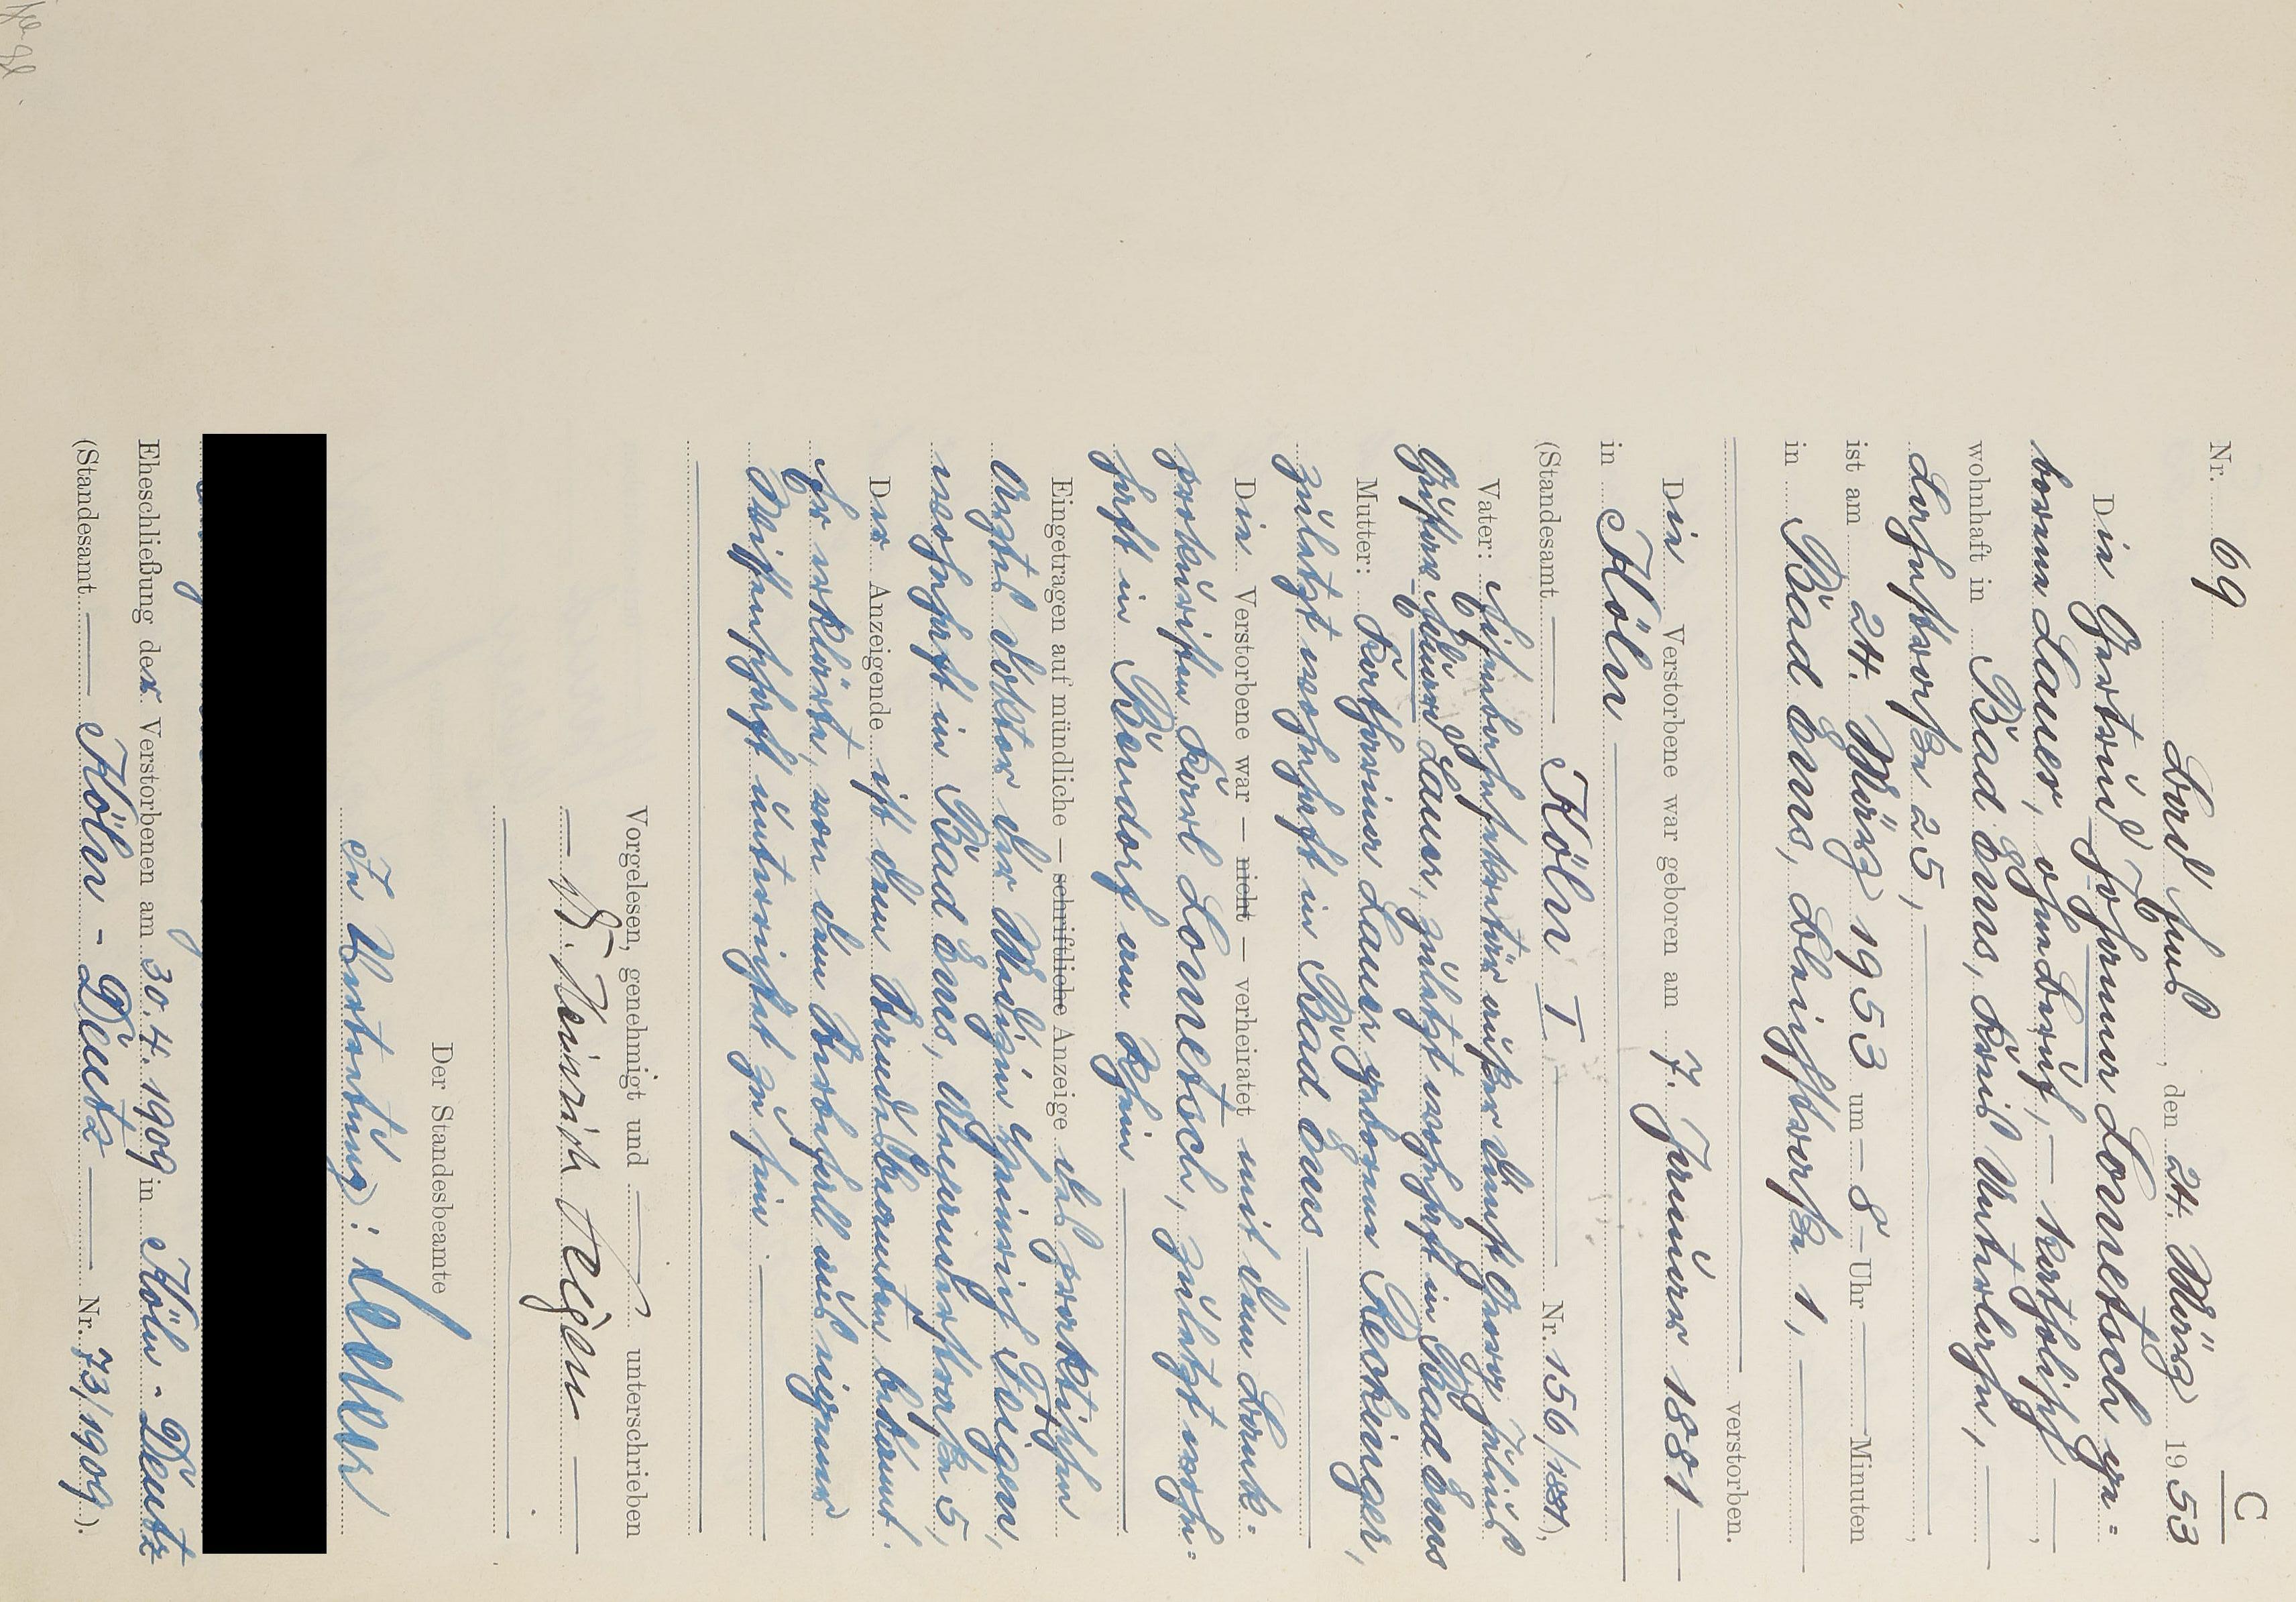 C
Nr. 69
Bad Ems, den 24. März 1953
Die Gertrud Johanna Lonetsch ge=
borene Lauer, ohne Beruf, — katholisch —,
wohnhaft in Bad Ems, Kreis Unterlahn, —
Lahnstraße 25, —,
ist am 24. März 1953 um — 8 — Uhr — Minuten
in Bad Ems, Bleichstraße 1, —
verstorben.
Die Verstorbene war geboren am 7. Januar 1881 —
in Köln —
(Standesamt — Köln I — Nr. 156/1881),
Vater: Eisenbahnsekretär außer Dienst Georg Julius
Gustav Lauer, zuletzt wohnhaft in Bad Ems
Mutter: Katharina Lauer geborene Reckinger,
zuletzt wohnhaft in Bad Ems —
Die Verstorbene war — nicht — verheiratet mit dem Bank=
prokuristen Karl Lonetsch, zuletzt wohn=
haft in Bendorf am Rhein —
Eingetragen auf mündliche — schriftliche Anzeige des praktischen
Arztes Doktor der Medizin Heinrich Feigen,
wohnhaft in Bad Ems, 5,
Der Anzeigende ist dem Standesbeamten bekannt.
Er erklärte, von dem Sterbefall aus eigener
Wissenschaft unterrichtet zu sein. —
Vorgelesen, genehmigt und — unterschrieben
— Dr. Heinrich Feigen —
Der Standesbeamte
In Vertretung:
Eheschließung der Verstorbenen am 30.4.1909 in Köln - Deutz
(Standesamt — Köln - Deutz — Nr. 73/1909).